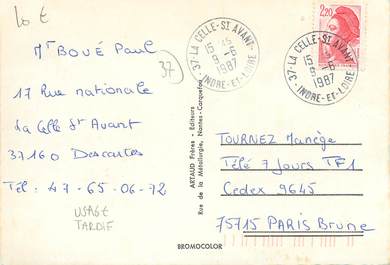 lot
Mr BOUÉ Paul
37
17 Rue nationale
La Celle St Avant
37160 Descartes
Tél : 47-65-06-72
USAGE
TARDIF
37-LA CELLE-ST AVANT-
15 H
9-6
1987
INDRE-ET-LOIRE
37-LA CELLE-ST AVANT-
15 H
9-6
1987
INDRE-ET-LOIRE
2,20
ARTAUD Frères - Editeurs
Rue de la Métallurgie, Nantes-Carquefou
TOURNEZ Manège
Télé 7 Jours TF1
Cedex 9645
75715 PARIS Brune
BROMOCOLOR